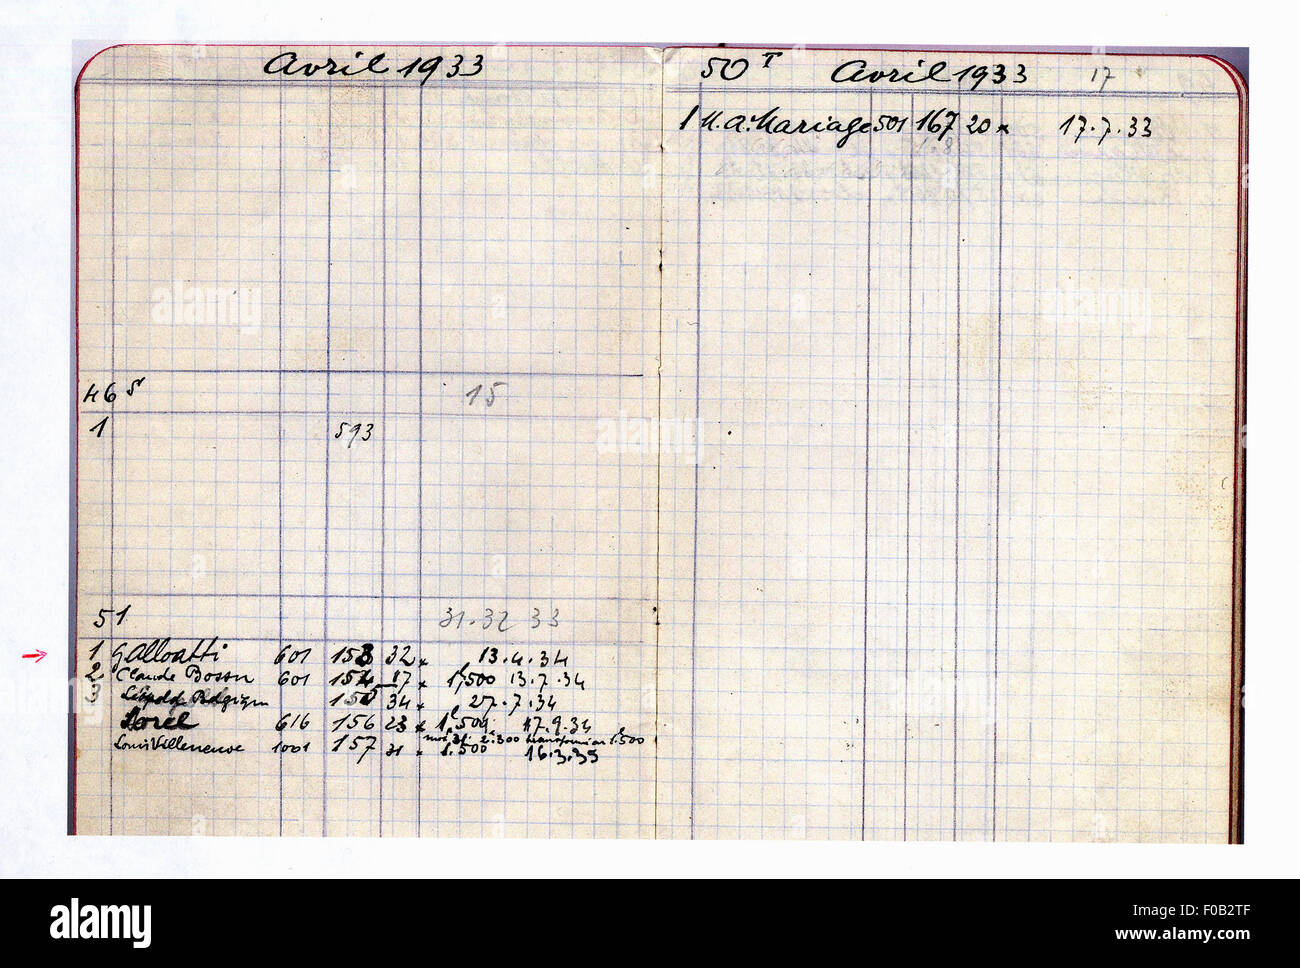 Avril 1933
46 S 15
1 593
51 31.32 33
1 Galloatti 601 153 32 x 13.4.34
2 Claude Bossu 601 154 17 x 1,500 13.7.34
3 155 34 x 27.7.34
Morel 616 156 23 x 17.9.34
2.300 1.500
Louis Villeneuve 1001 157 31 x 1.500 16.3.35
50 T Avril 1933 17
1 M.A. Mariage 501 167 20 x 17.7.33
alamy
alamy
Image ID: F0B2TF
www.alamy.com